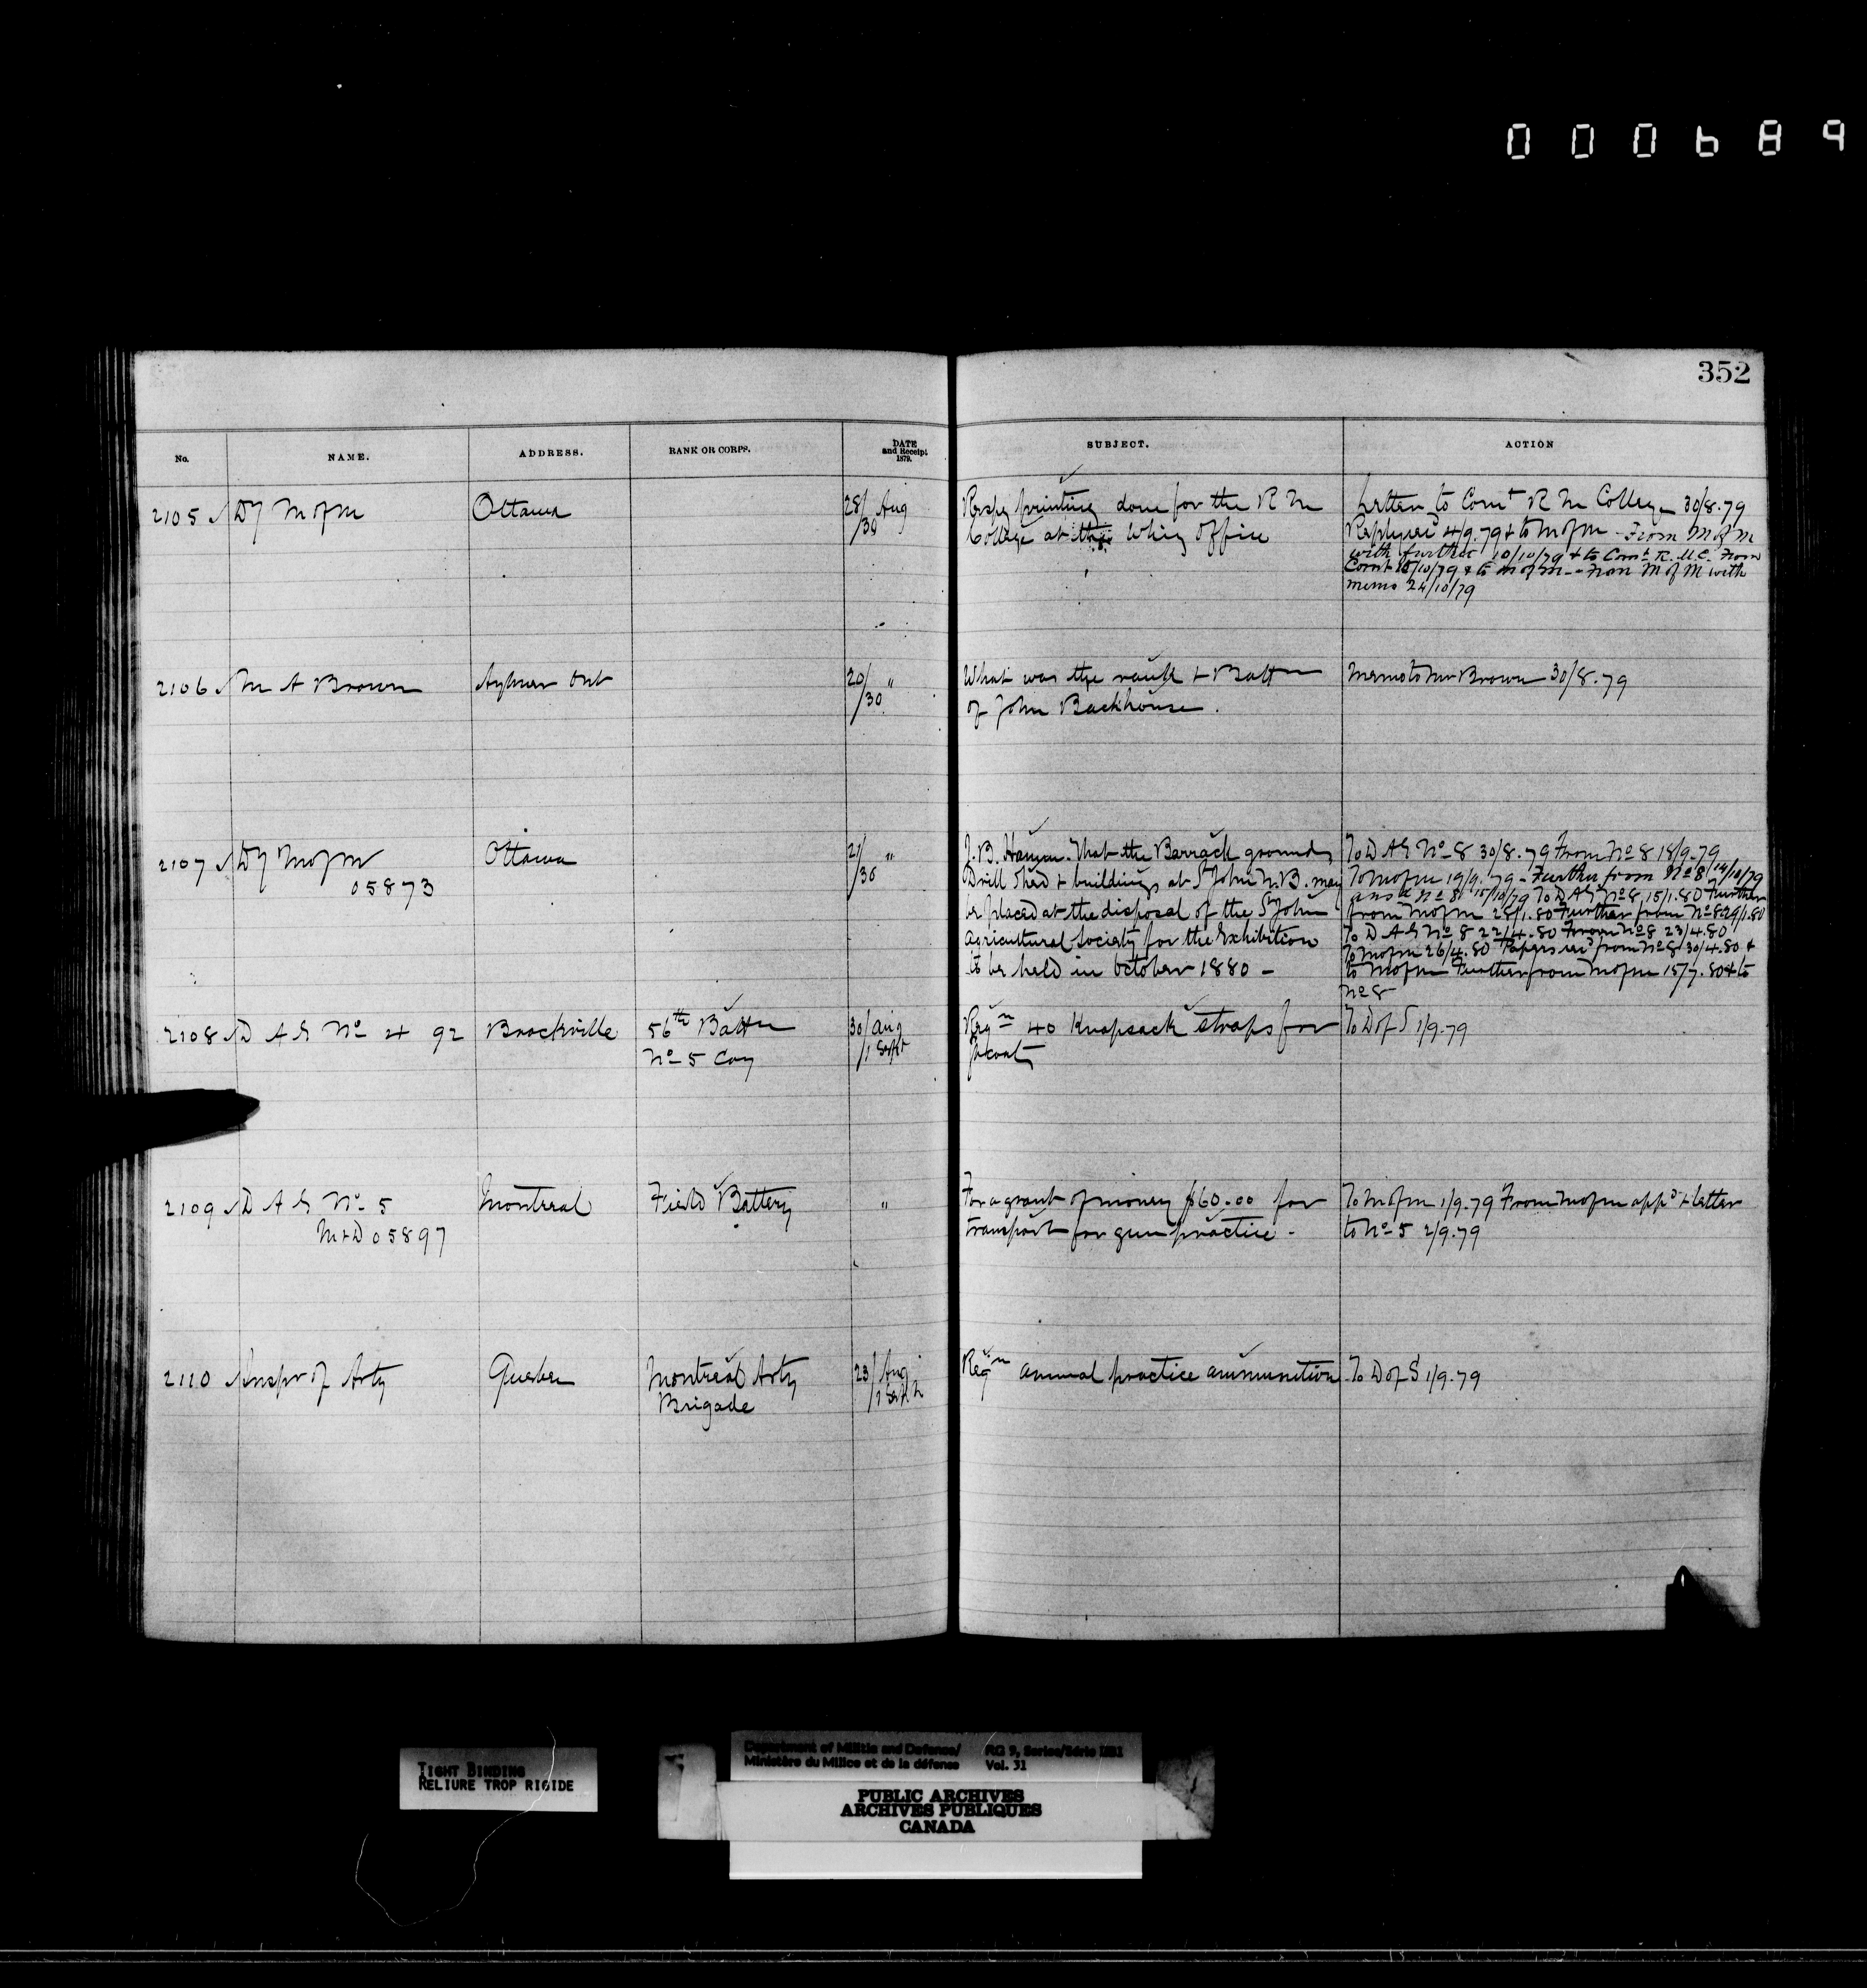 000689
352
No. NAME. ADDRESS. RANK OR CORPS. DATE and Receipt 1879. SUBJECT. ACTION
2105 Dy M of M Ottawa 28/30 Aug
Respg printing done for the R M
College at the Whig Office
Letter to Comt R M College 30/8.79
Reply recd 4/9.79 & to M of M - From M of M
with further 10/10/79 & to Comt R.M.C. From
Comt 18/10/79 & to M of M - From M of M with
memo 24/10/79
2106 M A Brown Aylmer Ont 20/30 "
What was the rank & Battn
of John Backhouse.
Memo to Mr Brown 30/8.79
2107 Dy M of M Ottawa 21/30 "
05873
J.B. That the Barrack grounds
Drill Shed & buildings at St John N.B. may
be placed at the disposal of the St John
Agricultural Society for the Exhibition
to be held in October 1880 -
To D A G No 8 30/8.79 From No 8 18/9.79
To M of M 19/9.'79 - Further from No 8 14/10/79
No 8 15/10/79 To D A G No 8 15/1.80 Further
from M of M 28/1.80 Further from No 8 29/1.80
To D A G No 8 22/4.80 From No 8 23/4.80
To M of M 26/4.80 Papers recd from No 8 30/4.80 &
to M of M Further from M of M 15/7.80 & to
No 8
2108 D A G No 4 92 Brockville 56th Battn 30/Aug
No 5 Coy /1 Sept
Reqn 40 Knapsack straps for
To D of S 1/9.79
2109 D A G No 5 Montreal Field Battery "
M & D 05897
For a grant of money $60.00 for
transport for gun practice -
To M of M 1/9.79 From M of M appd & letter
to No 5 2/9.79
2110 Inspr of Arty Quebec Montreal Arty 23/Aug
Brigade /1 Sept
Reqn annual practice ammunition
To D of S 1/9.79
TIGHT BINDING
RELIURE TROP RIGIDE
Department of Militia and Defence/ RG 9, Series/Série IIB1
Ministère du Milice et de la défense Vol. 31
PUBLIC ARCHIVES
ARCHIVES PUBLIQUES
CANADA